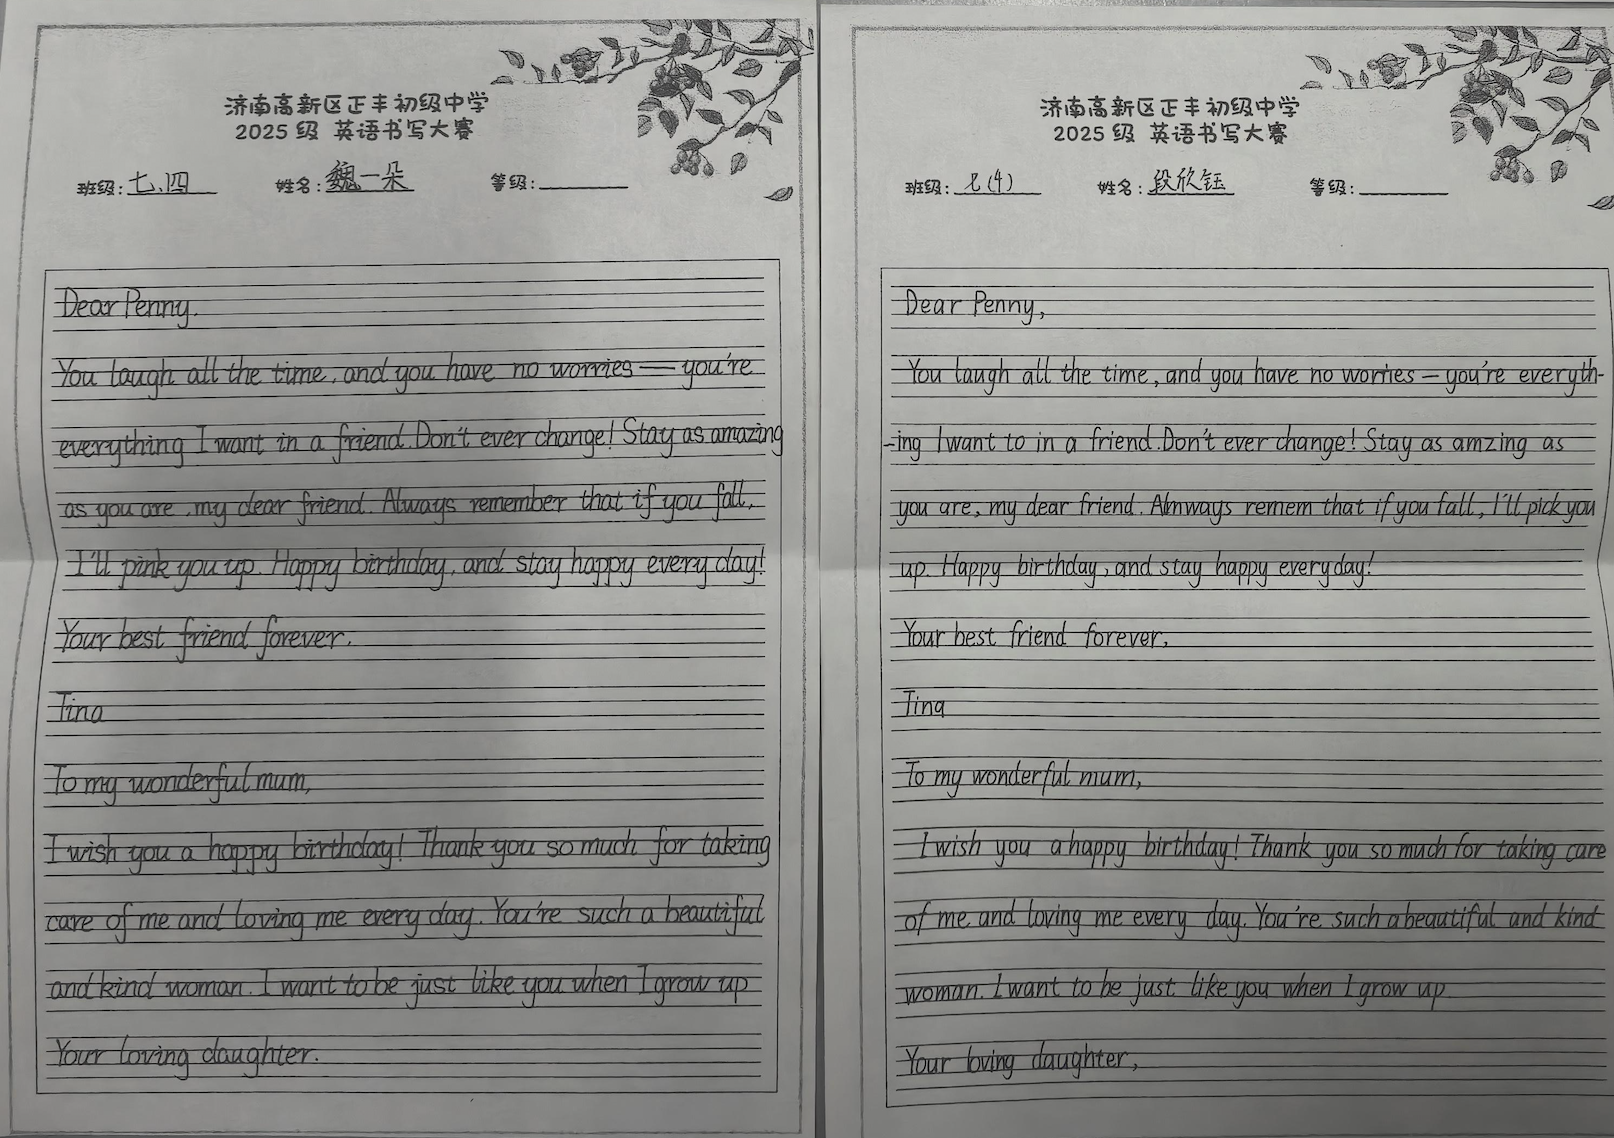 济南高新区正丰初级中学
2025级 英语书写大赛
班级:七.四 姓名:魏一朵 等级:
Dear Penny.
You laugh all the time, and you have no worries — you're
everything I want in a friend. Don't ever change! Stay as amazing
as you are, my dear friend. Always remember that if you fall,
I'll pink you up. Happy birthday, and stay happy every day!
Your best friend forever,
Tina
To my wonderful mum,
I wish you a happy birthday! Thank you so much for taking
care of me and loving me every day. You're such a beautiful
and kind woman. I want to be just like you when I grow up
Your loving daughter.
济南高新区正丰初级中学
2025级 英语书写大赛
班级:七(4) 姓名:段欣钰 等级:
Dear Penny,
You laugh all the time, and you have no worries — you're everyth-
-ing I want to in a friend. Don't ever change! Stay as amzing as
you are, my dear friend. Almways remem that if you fall, I'll pick you
up. Happy birthday, and stay happy every day!
Your best friend forever,
Tina
To my wonderful mum,
I wish you a happy birthday! Thank you so much for taking care
of me and loving me every day. You're such a beautiful and kind
woman. I want to be just like you when I grow up
Your loving daughter,